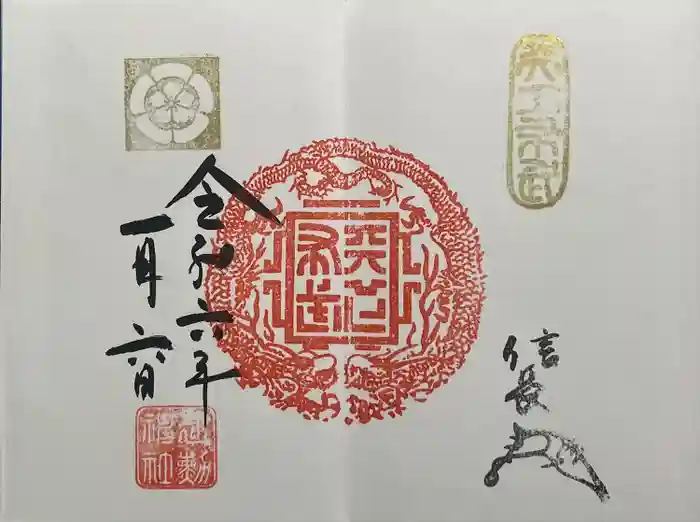 天下布武
天下布武
信長
令和六年
一月六日
建勲神社